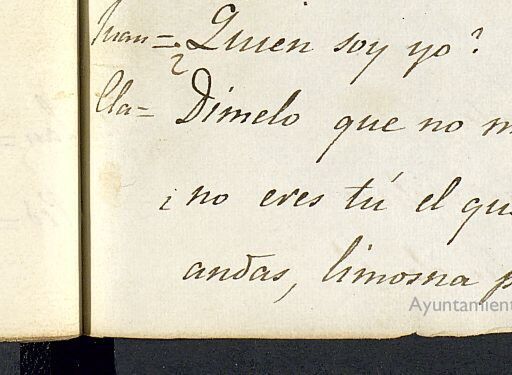 Juan= ¿Quien soy yo?
Cla= Dimelo que no m
¿no eres tú el que
andas, limosna p
Ayuntamient